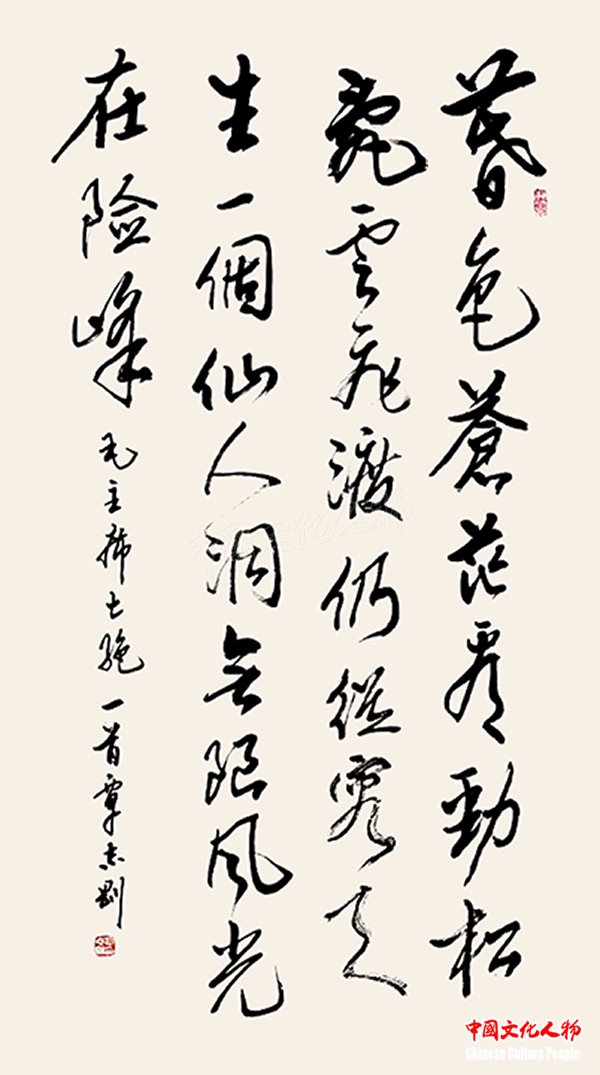 暮色蒼茫看勁松
亂雲飛渡仍從容天
生一個仙人洞無限风光
在险峰
毛主席七絕一首覃志剛
中國文化人物
Chinese Culture People